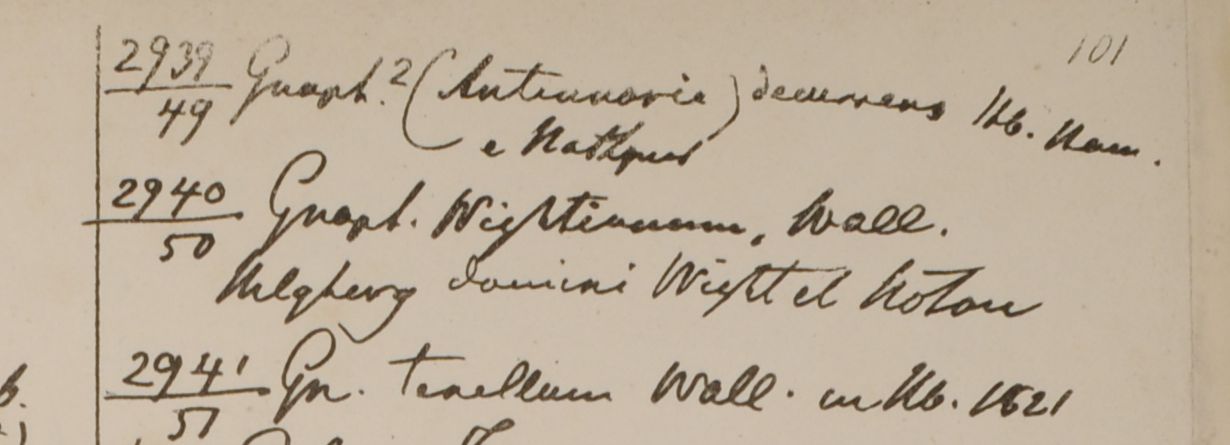 101
2939/49 Gnaph.? (Antennaria) decurrens Hb. Ham.
e Nathpur
2940/50 Gnaph. Wightianum, Wall.
domini Wight et
2941/51 Gn. tenellum Wall. in Hb. 1821